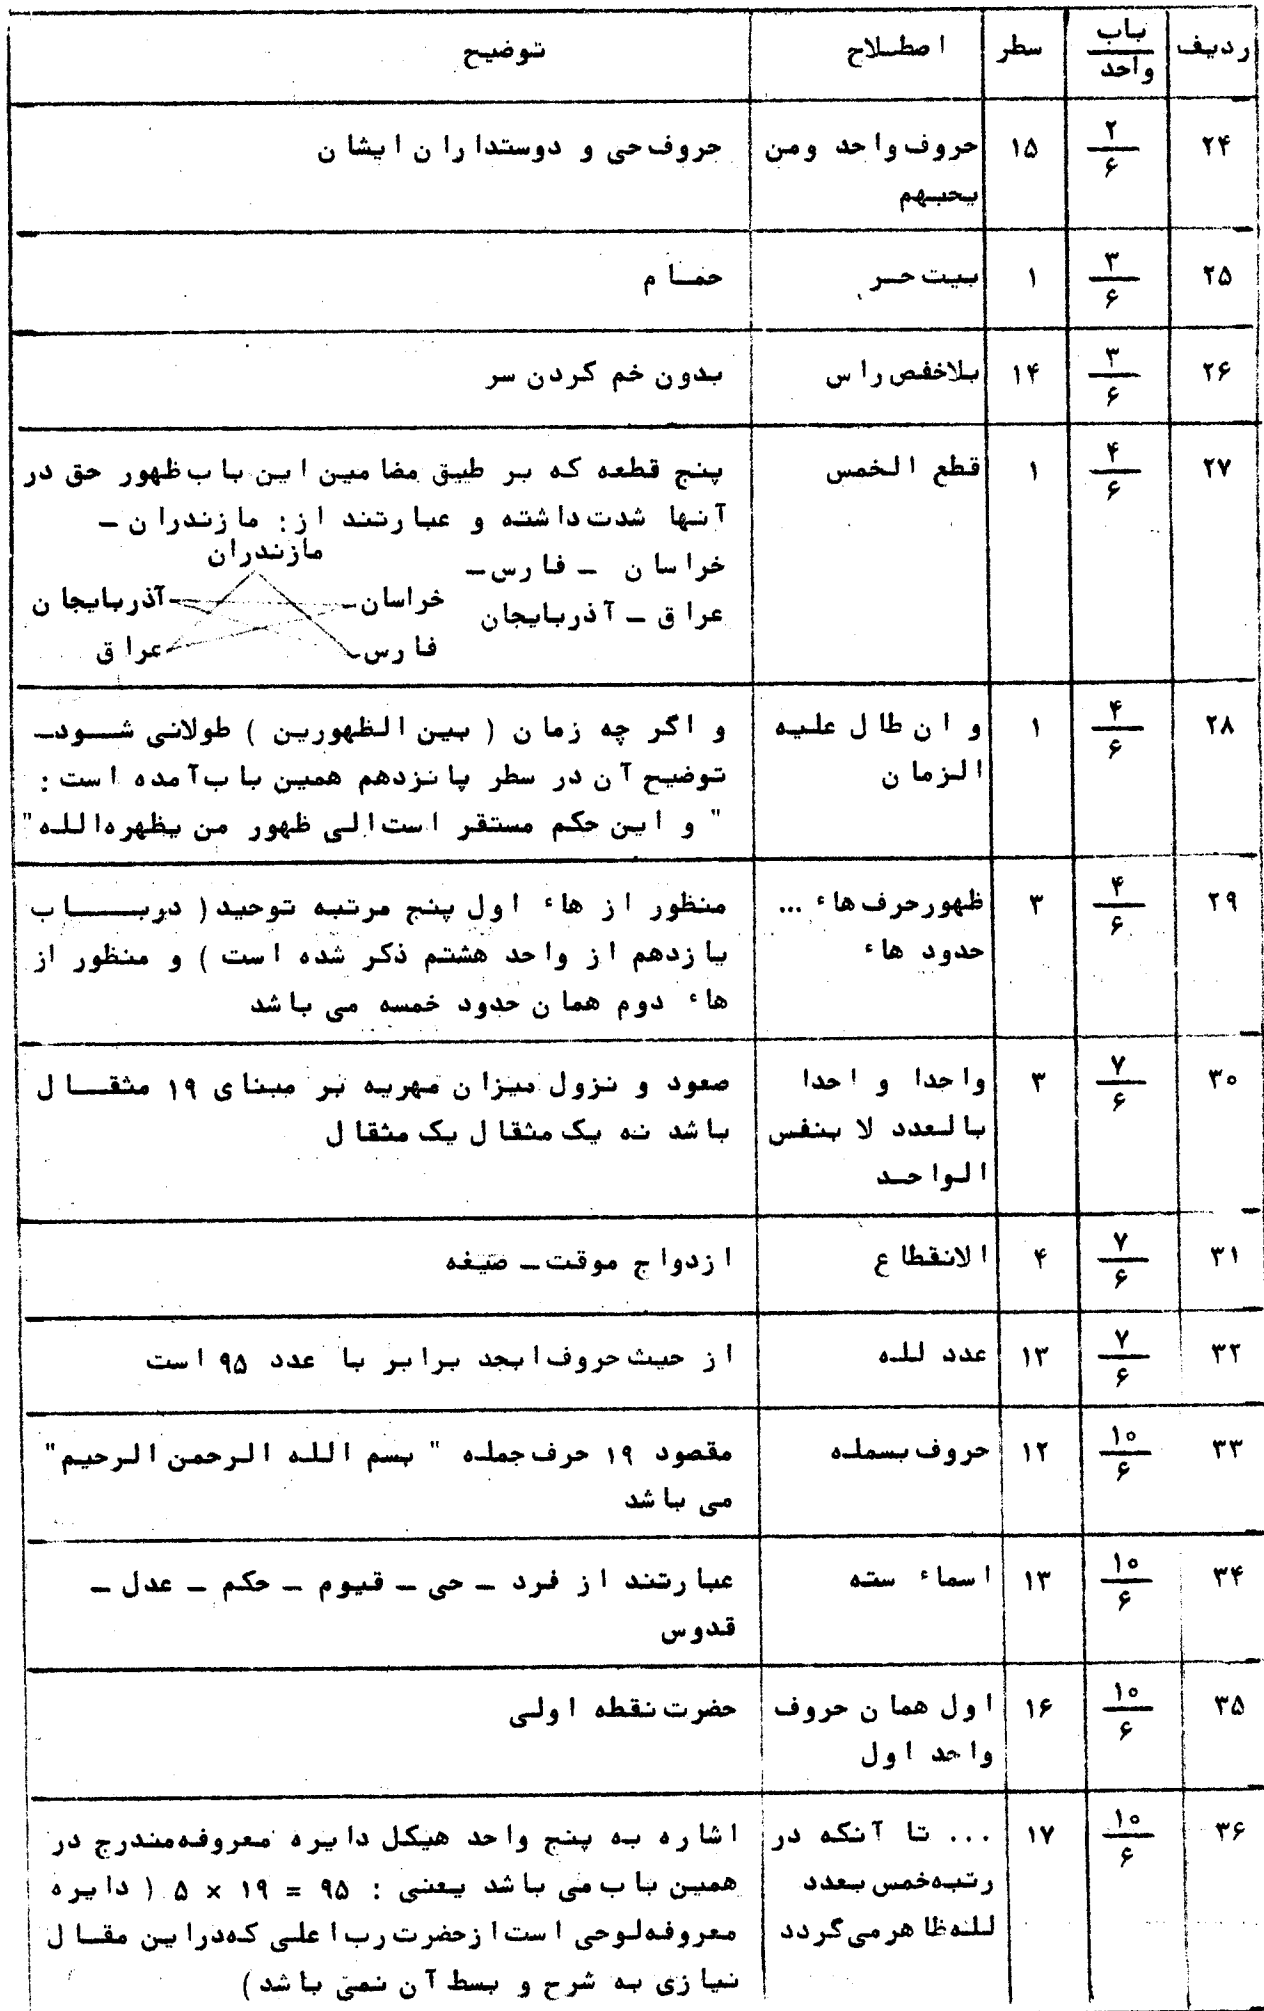 ردیف باب/واحد سطر اصطلاح توضیح
۲۴ ۲/۶ ۱۵ حروف واحد ومن حروف حی و دوستداران ایشان
یحبهم
۲۵ ۳/۶ ۱ بیت حر حمام
۲۶ ۳/۶ ۱۴ بلاخفص راس بدون خم کردن سر
۲۷ ۴/۶ ۱ قطع الخمس پنج قطعه که بر طبق مضامین این باب ظهور حق در
آنها شدت داشته و عبارتند از: مازندران –
خراسان – فارس–
عراق – آذربایجان
مازندران
خراسان آذربایجان
فارس عراق
۲۸ ۴/۶ ۱ و ان طال علیه و اگر چه زمان ( بین الظهورین ) طولانی شود–
الزمان توضیح آن در سطر پانزدهم همین باب آمده است :
" و این حکم مستقر است الی ظهور من یظهره الله "
۲۹ ۴/۶ ۳ ظهور حرف هاء ... منظور از هاء اول پنج مرتبه توحید ( در باب
حدود هاء یازدهم از واحد هشتم ذکر شده است ) و منظور از
هاء دوم همان حدود خمسه می باشد
۳۰ ۷/۶ ۳ واحدا و احدا صعود و نزول میزان مهریه بر مبنای ۱۹ مثقال
بالعدد لا بنفس باشد نه یک مثقال یک مثقال
الواحد
۳۱ ۷/۶ ۴ الانقطاع ازدواج موقت – صیغه
۳۲ ۷/۶ ۱۳ عدد لله از حیث حروف ابجد برابر با عدد ۹۵ است
۳۳ ۱۰/۶ ۱۲ حروف بسمله مقصود ۱۹ حرف جمله " بسم الله الرحمن الرحیم "
می باشد
۳۴ ۱۰/۶ ۱۳ اسماء سته عبارتند از فرد – حی – قیوم – حکم – عدل –
قدوس
۳۵ ۱۰/۶ ۱۶ اول همان حروف حضرت نقطه اولی
واحد اول
۳۶ ۱۰/۶ ۱۷ ... تا آنکه در اشاره به پنج واحد هیکل دایره معروفه مندرج در
رتبه خمس بعدد همین باب می باشد یعنی : ۹۵ = ۱۹ × ۵ ( دایره
لله ظاهر می گردد معروفه لوحی است از حضرت رب اعلی که در این مقال
نیازی به شرح و بسط آن نمی باشد )